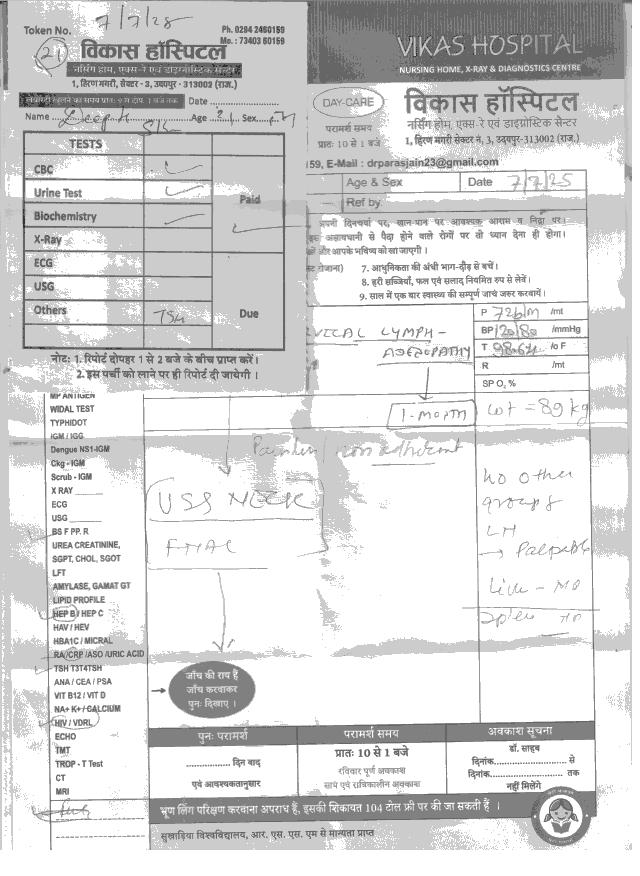 Token No.
7/7/25
Ph. 0294 2460159
Mo. : 73403 60159
21
विकास हॉस्पिटल
नर्सिंग होम, एक्स-रे एवं डाइग्नोस्टिक सेन्टर
1, हिरण मगरी, सेक्टर - 3, उदयपुर - 313002 (राज.)
Date
Name Deepak Age 21 Sex M
TESTS
CBC
Urine Test
Biochemistry
X-Ray
ECG
USG
Others TSH
Paid
Due
नोट: 1. रिपोर्ट दोपहर 1 से 2 बजे के बीच प्राप्त करें।
2. इस पर्ची को लाने पर ही रिपोर्ट दी जायेगी ।
VIKAS HOSPITAL
NURSING HOME, X-RAY & DIAGNOSTICS CENTRE
DAY-CARE
विकास हॉस्पिटल
परामर्श समय
नर्सिंग होम, एक्स-रे एवं डाइग्नोस्टिक सेन्टर
प्रातः 10 से 1 बजे
1, हिरण मगरी सेक्टर नं. 3, उदयपुर-313002 (राज.)
159, E-Mail : drparasjain23@gmail.com
Age & Sex
Date 7/7/25
Ref by.
अपनी दिनचर्या पर, खान-पान पर आवश्यक आराम व निद्रा पर।
इस असावधानी से पैदा होने वाले रोगों पर तो ध्यान देना ही होगा।
और आपके भविष्य को खा जाएगी।
7. आधुनिकता की अंधी भाग-दौड़ से बचें।
8. हरी सब्जियाँ, फल एवं सलाद नियमित रुप से लेवें।
9. साल में एक बार स्वास्थ्य की सम्पूर्ण जांच जरुर करवायें।
P 72b/m /mt
BP 120/80 /mmHg
T 98.6 /o F
R /mt
SP O, %
VICAL LYMPH-
ADENOPATHY
1-month
wt = 89 kg
Painless / non adherent
USS NECK
FNAC
No other
groups
LN
→ Palpable
Liver - NP
Spleen NP
MP ANTIGEN
WIDAL TEST
TYPHIDOT
IGM / IGG
Dengus NS1-IGM
Ckg - IGM
Scrub - IGM
X RAY
ECG
USG
BS F PP. R
UREA CREATININE,
SGPT, CHOL, SGOT
LFT
AMYLASE, GAMAT GT
LIPID PROFILE
HEP B / HEP C
HAV / HEV
HBA1C / MICRAL
RA/CRP /ASO /URIC ACID
TSH T3T4TSH
ANA / CEA / PSA
VIT B12 / VIT D
NA+ K+ / CALCIUM
HIV / VDRL
ECHO
TMT
TROP - T Test
CT
MRI
जाँच की राय है
जाँच करवाकर
पुनः दिखाए ।
पुनः परामर्श
परामर्श समय
अवकाश सूचना
दिन बाद
एवं आवश्यकतानुसार
प्रातः 10 से 1 बजे
रविवार पूर्ण अवकाश
सायं एवं रात्रिकालीन अवकाश
डॉ. साहब
दिनांक से
दिनांक तक
नहीं मिलेंगे
भ्रूण लिंग परिक्षण करवाना अपराध हैं, इसकी शिकायत 104 टोल फ्री पर की जा सकती हैं ।
सुखाड़िया विश्वविद्यालय, आर. एस. एस. एम से मान्यता प्राप्त